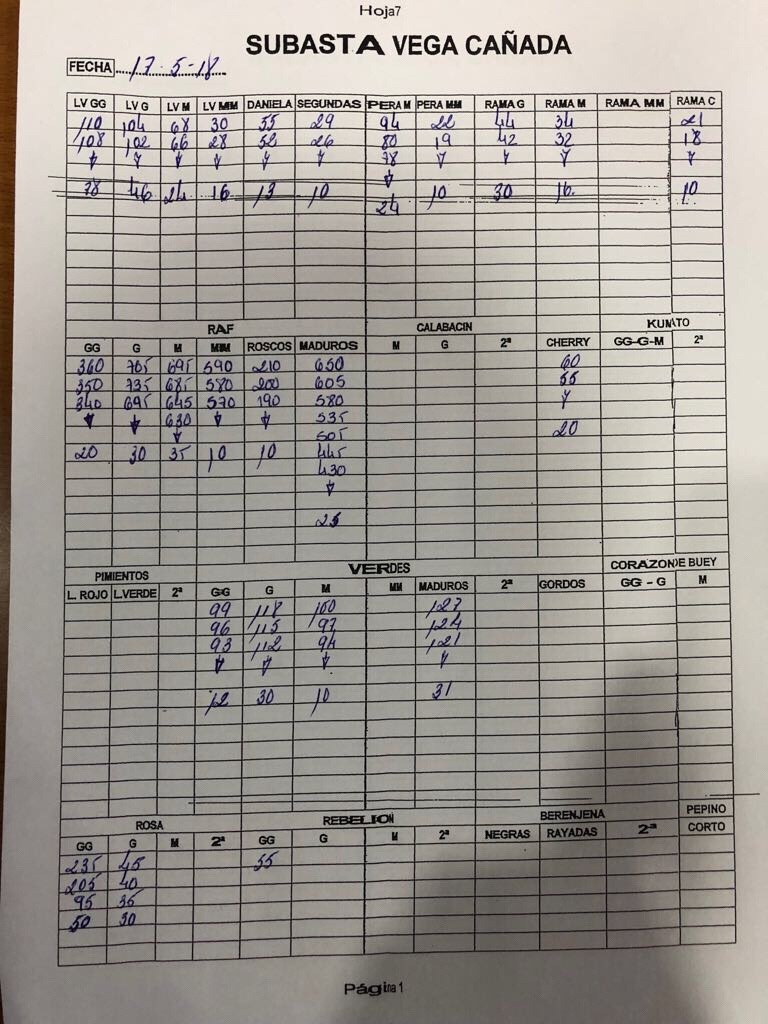 Hoja7
SUBASTA VEGA CAÑADA
FECHA 17-5-18
LV GG LV G LV M LV MM DANIELA SEGUNDAS PERA M PERA MM RAMA G RAMA M RAMA MM RAMA C
110 104 68 30 55 29 94 22 44 34 21
108 102 66 28 52 26 80 19 42 32 18
78
78 46 24 16 13 10 10 30 16 10
24
RAF CALABACIN KUMATO
GG G M MM ROSCOS MADUROS M G 2ª CHERRY GG-G-M 2ª
360 765 695 590 210 650 60
350 735 685 580 200 605 55
340 695 645 570 190 580
630 535 20
505
20 30 35 10 10 445
430
25
PIMIENTOS VERDES CORAZON DE BUEY
L. ROJO L.VERDE 2ª GG G M MM MADUROS 2ª GORDOS GG - G M
99 118 100 127
96 115 97 124
93 112 94 121
12 30 10 31
ROSA REBELION BERENJENA PEPINO
GG G M 2ª GG G M 2ª NEGRAS RAYADAS 2ª CORTO
235 45 55
205 40
95 35
50 30
Página 1